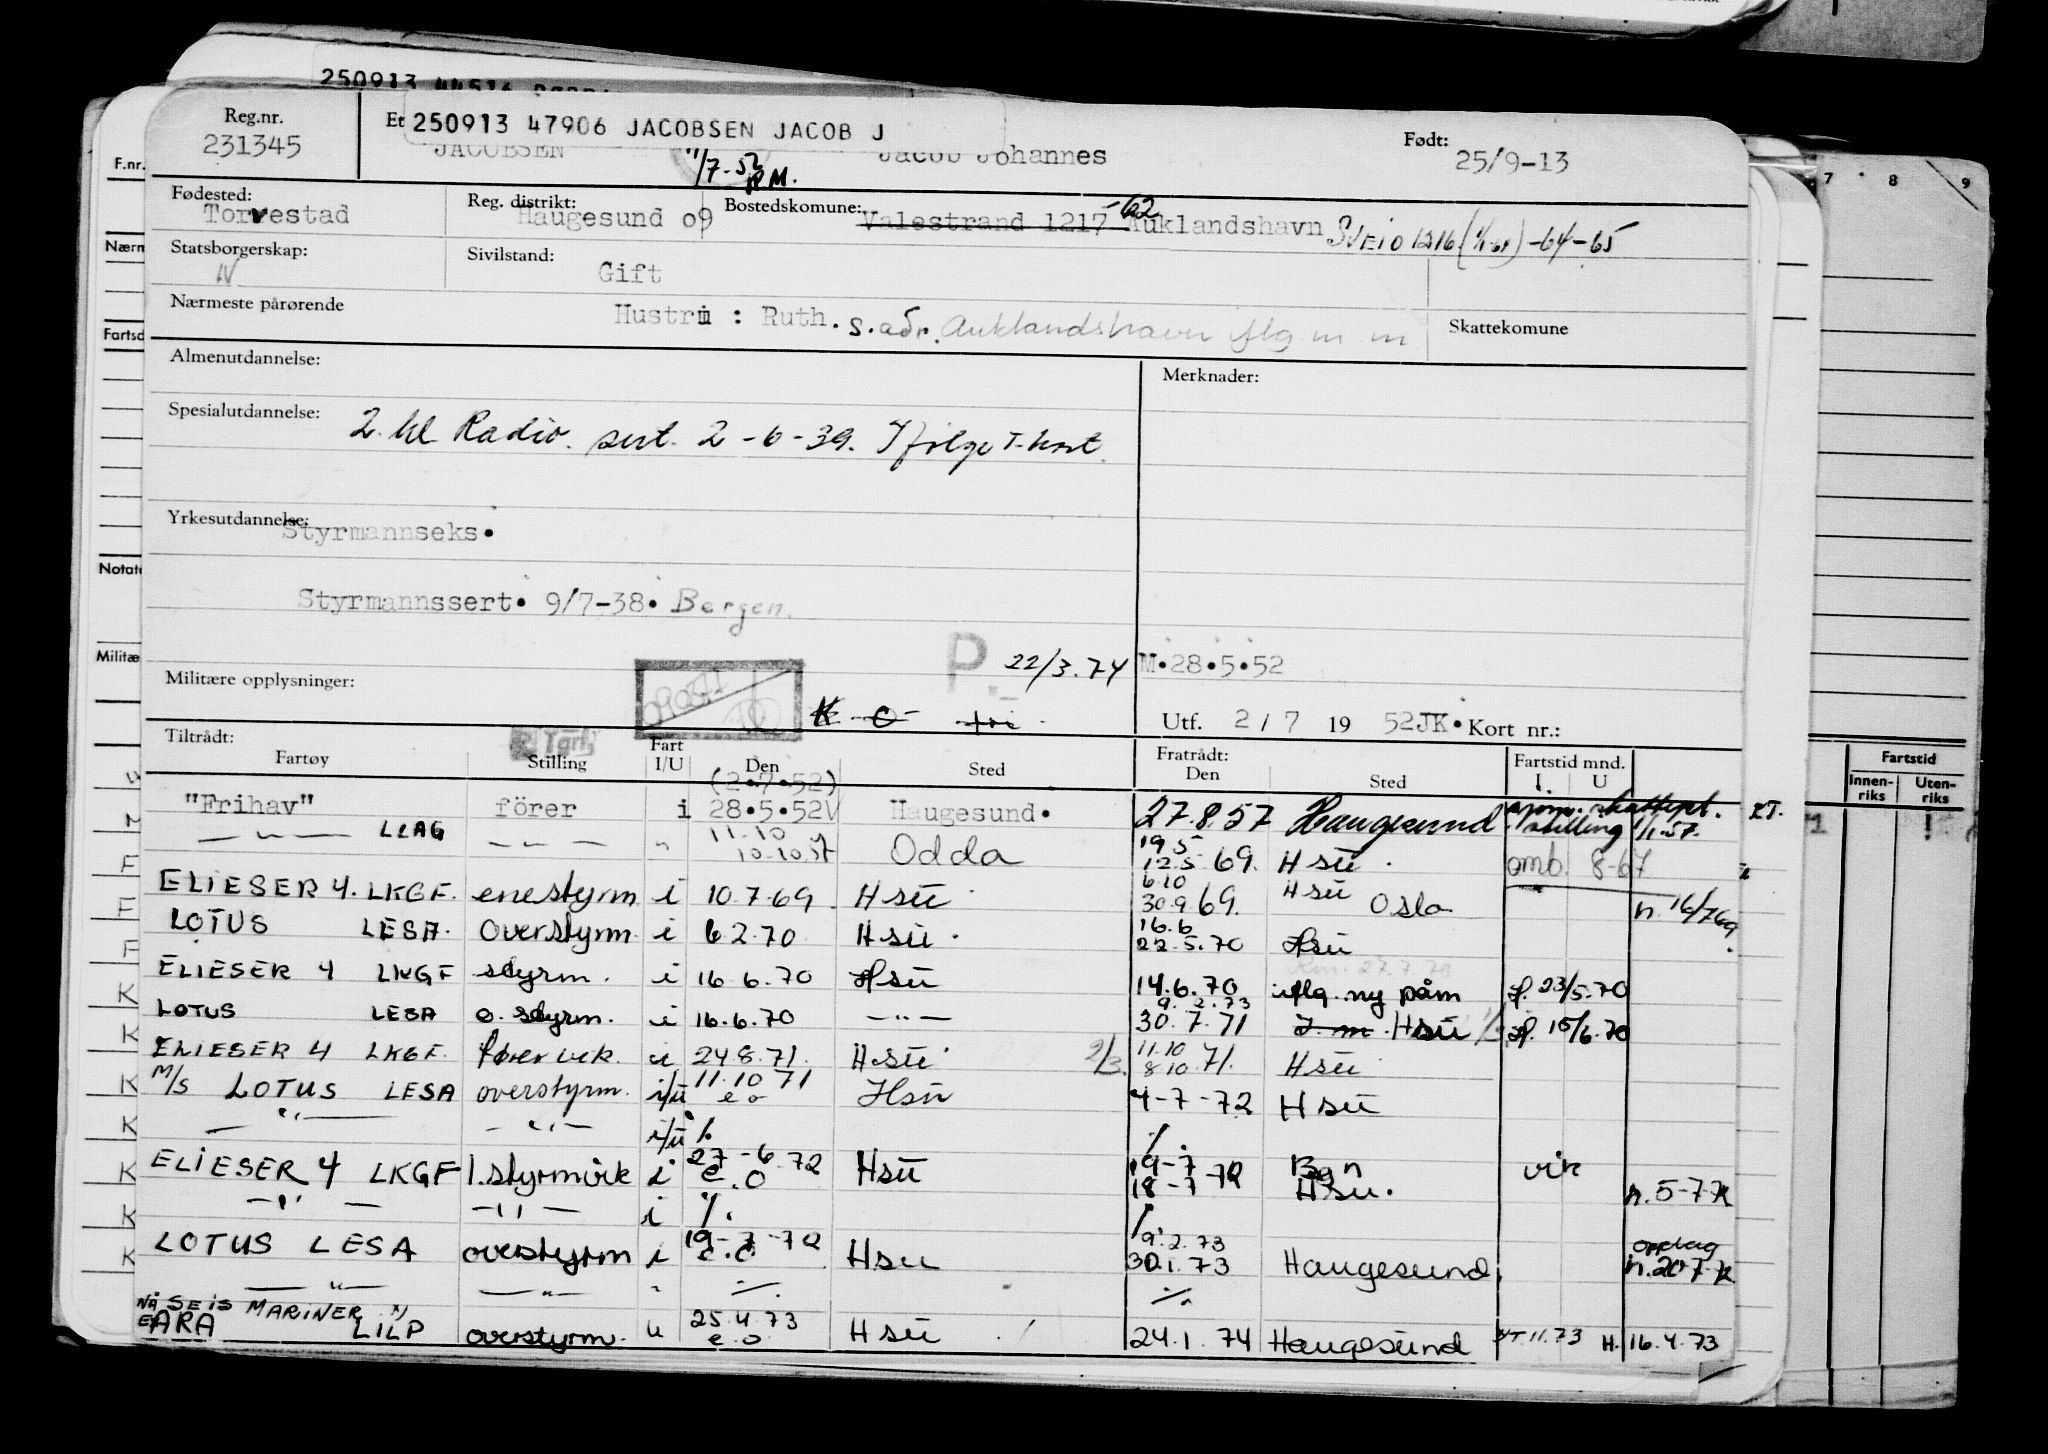 250913 44516
Reg.nr. 231345
Et 250913 47906 JACOBSEN JACOB J
JACOBSEN Jacob Johannes
Født: 25/9-13
11/7-52
Fødested: Torvestad
Reg. distrikt: Haugesund 09
Bostedskomune: Valestrand 1217 -62 Auklandshavn SVEIO 1216 -64-65
Statsborgerskap: N
Sivilstand: Gift
Nærmeste pårørende Hustru : Ruth. s. adr. Auklandshavn iflg m m
Skattekomune
Almenutdannelse:
Merknader:
Spesialutdannelse: 2. kl Radio. sert. 2-6-39. Ifølge T-kort.
Yrkesutdannelse: Styrmannseks.
Styrmannssert. 9/7-38. Bergen.
P 22/3.74
M.28.5.52
Militære opplysninger:
K O
Utf. 2/7 1952 JK. Kort nr.:
Tiltrådt:
Fartøy Stilling Fart I/U Den Sted
Fratrådt: Den Sted Fartstid mnd. I. U
(2.7.52)
"Frihav" förer i 28.5.52 Haugesund. 27.8.57 Haugesund stilling 1/1.57.
—"— LLAG —"— " 11.10 10.10 Odda 19.5 12.5.69. Hsu. omb. 8-67
ELIESER 4. LKGF. enestyrm i 10.7.69. Hsu 6.10 30.9 69. Hsu Oslo n. 16/7 69
LOTUS LESA. Overstyrm. i 6 2.70 Hsu. 16.6 22.5.70 Hsu
ELIESER 4 LKGF styrm. i 16.6.70 Hsu 14.6.70 iflg. ny påm 23/5.70
LOTUS LESA o. styrm. i 16.6.70 —"— 9.2.73 30.7.71 Hsu 15/6.70
ELIESER 4 LKGF. fører vik. i 24.8.71. Hsu 2/3. 11.10 8.10 71. Hsu
M/S LOTUS LESA overstyrm. i/u 11.10 71 e o Hsu 4-7-72 Hsu
—"— —"— i/u %. %.
ELIESER 4 LKGF 1.styrmvik i 27-6.72 e.o Hsu 19-7 18-7-72 Bgn Hsu. vik n. 5-7-72
—"— —"— i %. %
LOTUS LESA overstyrm i 19-7-72 e.o Hsu 9.2.73 30.1.73 Haugesund, n. 20 7-72
—"— —"— " %. %.
NÅ SEIS MARINER
EARA LILP overstyrm. u 25.4.73 e.o Hsu 24.1.74 Haugesund 11.73 H. 16.4.73
F.nr.
Nærm
Fartsd
Notate
Militæ
7 8 9
Fartstid
Innenriks Utenriks